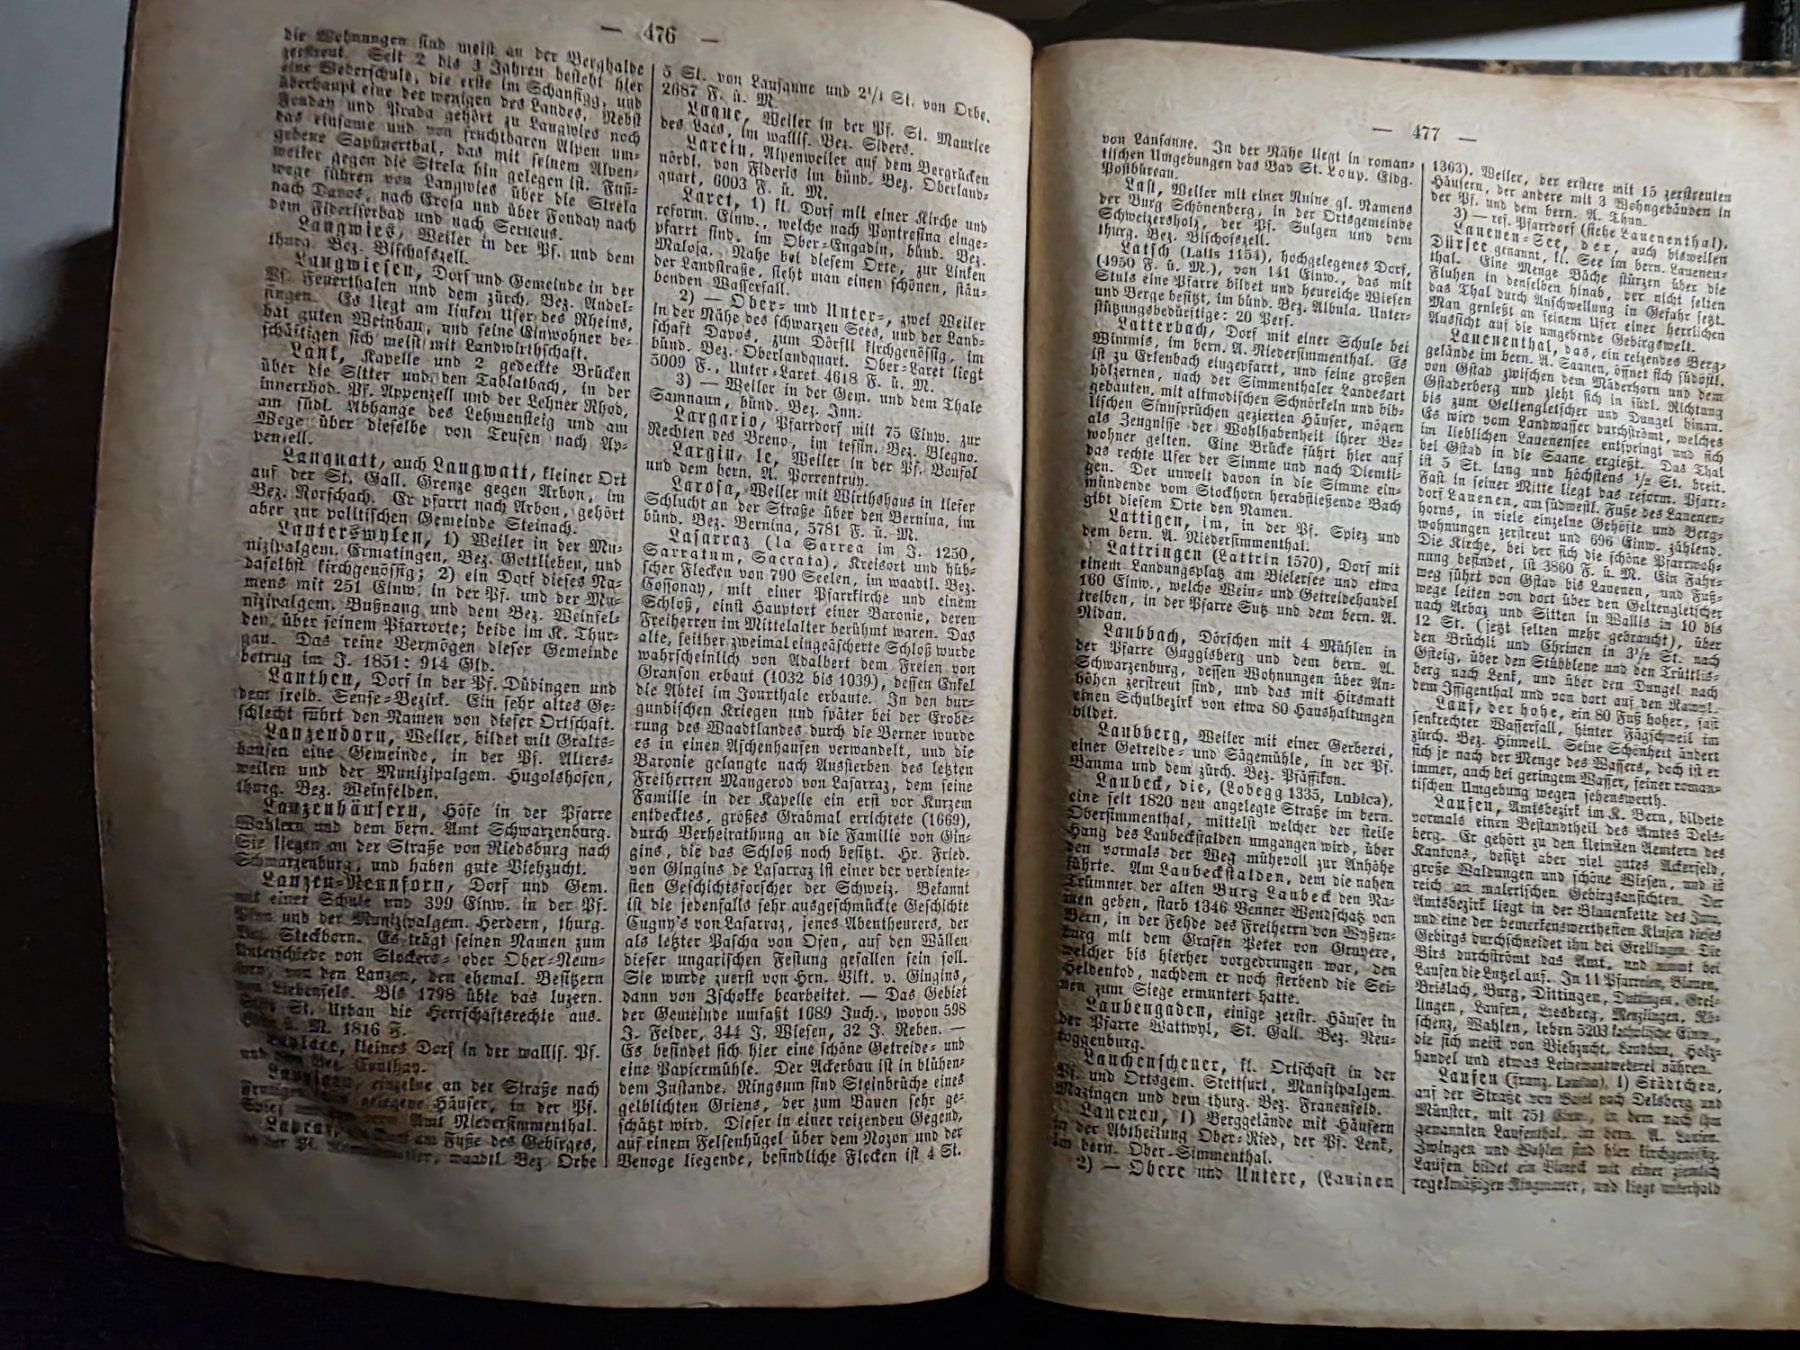 — 476 —
die Wohnungen sind meist an der Berghalde
zerstreut. Seit 2 bis 3 Jahren besteht hier
eine Wederschule, die erste im Schanfigg, und
überhaupt eine der wenigen des Landes. Nebst
Fonday und Prada gehört zu Langwies noch
das einsame und von fruchtbaren Alpen um-
gebene Sapünerthal, das mit seinem Alpen-
weiler gegen die Strela hin gelegen ist. Fuß-
wege führen von Langwies über die Strela
nach Davos, nach Erosa und über Fonday nach
dem Fideriserbad und nach Serneus.
Langwies, Weiler in der Pf. und dem
thurg. Bez. Bischofszell.
Langwiesen, Dorf und Gemeinde in der
Pf. Feuerthalen und dem zürch. Bez. Andel-
fingen. Es liegt am linken Ufer des Rheins,
hat guten Weinbau, und seine Einwohner be-
schäftigen sich meist mit Landwirthschaft.
Lank, Kapelle und 2 gedeckte Brücken
über die Sitter und den Tablatbach, in der
innerrhod. Pf. Appenzell und der Lehner Rhod,
am südl. Abhange des Lehmensteig und am
Wege über dieselbe von Teufen nach Ap-
penzell.
Lanquatt, auch Langwatt, kleiner Ort
auf der St. Gall. Grenze gegen Arbon, im
Bez. Rorschach. Er pfarrt nach Arbon, gehört
aber zur politischen Gemeinde Steinach.
Lanterswylen, 1) Weiler in der Mu-
nizipalgem. Ermatingen, Bez. Gottlieben, und
daselbst kirchgenössig; 2) ein Dorf dieses Na-
mens mit 251 Einw. in der Pf. und der Mu-
nizipalgem. Bußnang und dem Bez. Weinfel-
den, über seinem Pfarrorte; beide im K. Thur-
gau. Das reine Vermögen dieser Gemeinde
betrug im J. 1851: 914 Gld.
Lanthen, Dorf in der Pf. Düdingen und
dem freib. Sense-Bezirk. Ein sehr altes Ge-
schlecht führt den Namen von dieser Ortschaft.
Lanzendorn, Weiler, bildet mit Gralts-
hausen eine Gemeinde, in der Pf. Alters-
weilen und der Munizipalgem. Hugolshofen,
thurg. Bez. Weinfelden.
Lanzenhäusern, Höfe in der Pfarre
Wahlern und dem bern. Amt Schwarzenburg.
Sie liegen an der Straße von Riedsburg nach
Schwarzenburg, und haben gute Viehzucht.
Lanzen-Neunforn, Dorf und Gem.
mit einer Schule und 399 Einw. in der Pf.
Pfyn und der Munizipalgem. Herdern, thurg.
Bez. Steckborn. Es trägt seinen Namen zum
Unterschiede von Stockers- oder Ober-Neun-
forn, von den Lanzen, den ehemal. Besitzern
von Liebenfels. Bis 1798 übte das luzern.
Stift St. Urban die Herrschaftsrechte aus.
ü. M. 1816 F.
Laplace, kleines Dorf in der wallis. Pf.
und dem Bez. Conthey.
einzelne an der Straße nach
Frutigen gelegene Häuser, in der Pf.
Spiez und dem bern. Amt Niedersimmenthal.
am Fuße des Gebirges,
in der Pf. waadtl. Bez. Orbe
5 St. von Lausanne und 2¼ St. von Orbe.
2687 F. ü. M.
Laque, Weiler in der Pf. St. Maurice
des Lacs, im wallis. Bez. Siders.
Larein, Alpenweiler auf dem Bergrücken
nördl. von Fideris im bünd. Bez. Oberland-
quart, 6003 F. ü. M.
Laret, 1) kl. Dorf mit einer Kirche und
reform. Einw., welche nach Pontresina einge-
pfarrt sind, im Ober-Engadin, bünd. Bez.
Maloja. Nahe bei diesem Orte, zur Linken
der Landstraße, sieht man einen schönen, stäu-
benden Wasserfall.
2) — Ober- und Unter-, zwei Weiler
in der Nähe des schwarzen Sees, und der Land-
schaft Davos, zum Dörfli kirchgenössig, im
bünd. Bez. Oberlandquart. Ober-Laret liegt
5009 F., Unter-Laret 4618 F. ü. M.
3) — Weiler in der Gem. und dem Thale
Samnaun, bünd. Bez. Inn.
Largario, Pfarrdorf mit 75 Einw. zur
Rechten des Breno, im tessin. Bez. Blegno.
Largin, le, Weiler in der Pf. Bonfol
und dem bern. A. Porrentruy.
Larosa, Weiler mit Wirthshaus in tiefer
Schlucht an der Straße über den Bernina, im
bünd. Bez. Bernina, 5781 F. ü. M.
Lasarraz (la Sarrea im J. 1250,
Sarratum, Sacrata), Kreisort und hüb-
scher Flecken von 790 Seelen, im waadtl. Bez.
Cossonay, mit einer Pfarrkirche und einem
Schloß, einst Hauptort einer Baronie, deren
Freiherren im Mittelalter berühmt waren. Das
alte, seither zweimal eingeäscherte Schloß wurde
wahrscheinlich von Adalbert dem Freien von
Granson erbaut (1032 bis 1039), dessen Enkel
die Abtei im Jourthale erbaute. In den bur-
gundischen Kriegen und später bei der Erobe-
rung des Waadtlandes durch die Berner wurde
es in einen Aschenhaufen verwandelt, und die
Baronie gelangte nach Aussterben des letzten
Freiherren Mangerod von Lasarraz, dem seine
Familie in der Kapelle ein erst vor Kurzem
entdecktes, großes Grabmal errichtete (1669),
durch Verheirathung an die Familie von Gin-
gins, die das Schloß noch besitzt. Hr. Fried.
von Gingins de Lasarraz ist einer der verdiente-
sten Geschichtsforscher der Schweiz. Bekannt
ist die jedenfalls sehr ausgeschmückte Geschichte
Cugny's von Lasarraz, jenes Abentheurers, der
als letzter Pascha von Ofen, auf den Wällen
dieser ungarischen Festung gefallen sein soll.
Sie wurde zuerst von Hrn. Vikt. v. Gingins,
dann von Zschokke bearbeitet. — Das Gebiet
der Gemeinde umfaßt 1689 Juch., wovon 598
J. Felder, 344 J. Wiesen, 32 J. Reben. —
Es befindet sich hier eine schöne Getreide- und
eine Papiermühle. Der Ackerbau ist in blühen-
dem Zustande. Ringsum sind Steinbrüche eines
gelblichten Griens, der zum Bauen sehr ge-
schätzt wird. Dieser in einer reizenden Gegend,
auf einem Felsenhügel über dem Nozon und der
Venoge liegende, befindliche Flecken ist 4 St.
— 477 —
von Lausanne. In der Nähe liegt in roman-
tischen Umgebungen das Bad St. Loup. Eidg.
Postbüreau.
Last, Weiler mit einer Ruine gl. Namens
der Burg Schönenberg, in der Ortsgemeinde
Schweizersholz, der Pf. Sulgen und dem
thurg. Bez. Bischofszell.
Latsch (Latts 1154), hochgelegenes Dorf,
(4950 F. ü. M.), von 141 Einw., das mit
Stuls eine Pfarre bildet und heureiche Wiesen
und Berge besitzt, im bünd. Bez. Albula. Unter-
stützungsbedürftige: 20 Pers.
Latterbach, Dorf mit einer Schule bei
Wimmis, im bern. A. Niedersimmenthal. Es
ist zu Erlenbach eingepfarrt, und seine großen
hölzernen, nach der Simmenthaler Landesart
gebauten, mit altmodischen Schnörkeln und bib-
lischen Sinnsprüchen gezierten Häuser, mögen
als Zeugnisse der Wohlhabenheit ihrer Be-
wohner gelten. Eine Brücke führt hier auf
das rechte Ufer der Simme und nach Diemti-
gen. Der unweit davon in die Simme ein-
mündende vom Stockhorn herabfließende Bach
gibt diesem Orte den Namen.
Lattigen, im, in der Pf. Spiez und
dem bern. A. Niedersimmenthal.
Lattringen (Lattrin 1570), Dorf mit
einem Landungsplatz am Bielersee und etwa
160 Einw., welche Wein- und Getreidehandel
treiben, in der Pfarre Sutz und dem bern. A.
Nidau.
Laubbach, Dörfchen mit 4 Mühlen in
der Pfarre Guggisberg und dem bern. A.
Schwarzenburg, dessen Wohnungen über An-
höhen zerstreut sind, und das mit Hirsmatt
einen Schulbezirk von etwa 80 Haushaltungen
bildet.
Laubberg, Weiler mit einer Gerberei,
einer Getreide- und Sägemühle, in der Pf.
Bauma und dem zürch. Bez. Pfäffikon.
Laubeck, die, (Lobegg 1335, Lubica),
eine seit 1820 neu angelegte Straße im bern.
Obersimmenthal, mittelst welcher der steile
Hang des Laubeckstalden umgangen wird, über
den vormals der Weg mühevoll zur Anhöhe
führte. Am Laubeckstalden, dem die nahen
Trümmer der alten Burg Laubeck den Na-
men geben, starb 1346 Venner Wendschatz von
Bern, in der Fehde des Freiherrn von Wyßen-
burg mit dem Grafen Peter von Gruyere,
welcher bis hierher vorgedrungen war, den
Heldentod, nachdem er noch sterbend die Sei-
nen zum Siege ermuntert hatte.
Laubengaden, einige zerstr. Häuser in
der Pfarre Wattwyl, St. Gall. Bez. Neu-
toggenburg.
Lauchenscheuer, kl. Ortschaft in der
Pf. und Ortsgem. Stettfurt, Munizipalgem.
Matzingen und dem thurg. Bez. Frauenfeld.
Lauenen, 1) Berggelände mit Häusern
in der Abtheilung Ober-Ried, der Pf. Lenk,
im bern. Ober-Simmenthal.
2) — Obere und Untere, (Lauinen
1363), Weiler, der erstere mit 15 zerstreuten
Häusern, der andere mit 3 Wohngebäuden in
der Pf. und dem bern. A. Thun.
3) — ref. Pfarrdorf (siehe Lauenenthal).
Lauenen-See, der, auch bisweilen
Dürsee genannt, kl. See im bern. Lauenen-
thal. Eine Menge Bäche stürzen über die
Fluhen in denselben hinab, der nicht selten
das Thal durch Anschwellung in Gefahr setzt.
Man genießt an seinem Ufer einer herrlichen
Aussicht auf die umgebende Gebirgswelt.
Lauenenthal, das, ein reizendes Berg-
gelände im bern. A. Saanen, öffnet sich südöstl.
von Gstad zwischen dem Mäderhorn und dem
Gstaderberg und zieht sich in südl. Richtung
bis zum Geltengletscher und Dungel hinan.
Es wird vom Landwasser durchströmt, welches
im lieblichen Lauenensee entspringt und sich
bei Gstad in die Saane ergießt. Das Thal
ist 5 St. lang und höchstens ½ St. breit.
Fast in seiner Mitte liegt das reform. Pfarr-
dorf Lauenen, am südwestl. Fuße des Lauenen-
horns, in viele einzelne Gehöfte und Berg-
wohnungen zerstreut und 696 Einw. zählend.
Die Kirche, bei der sich die schöne Pfarrwoh-
nung befindet, ist 3860 F. ü. M. Ein Fahr-
weg führt von Gstad bis Lauenen, und Fuß-
wege leiten von dort über den Geltengletscher
nach Arbaz und Sitten in Wallis in 10 bis
12 St. (jetzt selten mehr gebraucht), über
den Brüchli und Chrinen in 3½ St. nach
Gsteig, über den Stübblene und den Trüttlis-
berg nach Lenk, und über den Dungel nach
dem Iffigenthal und von dort auf den Rawyl.
Lauf, der hohe, ein 80 Fuß hoher, fast
senkrechter Wasserfall, hinter Fägschweil im
zürch. Bez. Hinweil. Seine Schönheit ändert
sich je nach der Menge des Wassers, doch ist er
immer, auch bei geringem Wasser, seiner roman-
tischen Umgebung wegen sehenswerth.
Laufen, Amtsbezirk im K. Bern, bildete
vormals einen Bestandtheil des Amtes Dels-
berg. Er gehört zu den kleinsten Aemtern des
Kantons, besitzt aber viel gutes Ackerfeld,
große Waldungen und schöne Wiesen, und ist
reich an malerischen Gebirgsansichten. Der
Amtsbezirk liegt in der Blauenkette des Jura,
und eine der bemerkenswerthesten Klusen dieses
Gebirgs durchschneidet ihn bei Grellingen. Die
Birs durchströmt das Amt, und nimmt bei
Laufen die Lutzel auf. In 11 Pfarreien, Blauen,
Brislach, Burg, Dittingen, Duttingen, Grel-
lingen, Laufen, Liesberg, Nenzlingen, Rö-
schenz, Wahlen, leben 5203 katholische Einw.,
die sich meist von Viehzucht, Landbau, Holz-
handel und etwas Leinenweberei nähren.
Laufen (franz. Laufon), 1) Städtchen,
auf der Straße von Basel nach Delsberg und
Münster, mit 751 Einw., in dem nach ihm
genannten Laufenthal, im bern. A. Laufen.
Zwingen und Wahlen sind hier kirchgenössig.
Laufen bildet ein Viereck mit einer ziemlich
regelmäßigen Ringmauer, und liegt unterhalb